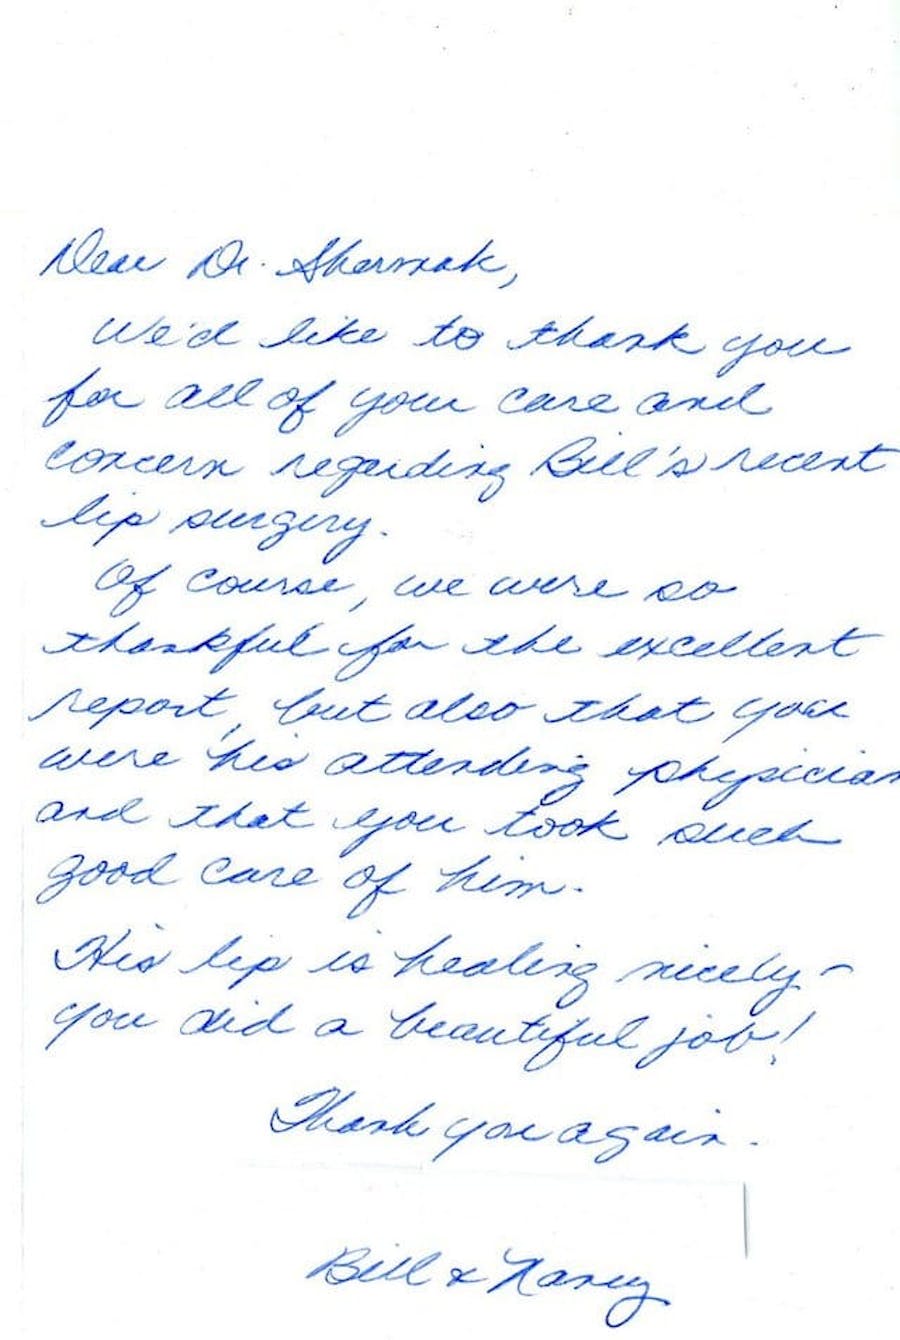 Dear Dr. Sharmak,
We'd like to thank you
for all of your care and
concern regarding Bill's recent
lip surgery.
Of course, we were so
thankful for the excellent
report, but also that you
were his attending physician
and that you took such
good care of him.
His lip is healing nicely -
you did a beautiful job!
Thank you again.
Bill & Nancy